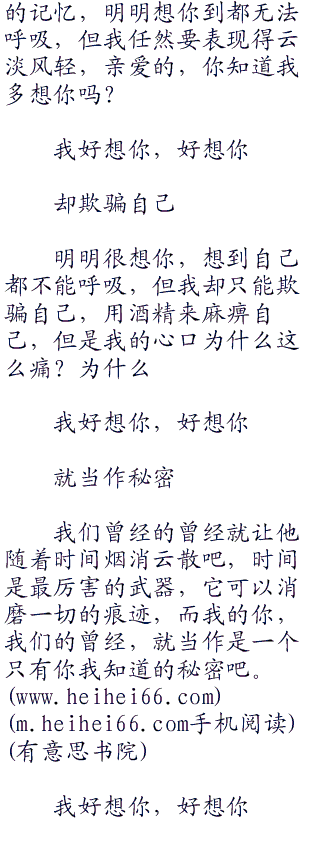 的记忆，明明想你到都无法
呼吸，但我任然要表现得云
淡风轻，亲爱的，你知道我
多想你吗？
我好想你，好想你
却欺骗自己
明明很想你，想到自己
都不能呼吸，但我却只能欺
骗自己，用酒精来麻痹自
己，但是我的心口为什么这
么痛？为什么
我好想你，好想你
就当作秘密
我们曾经的曾经就让他
随着时间烟消云散吧，时间
是最厉害的武器，它可以消
磨一切的痕迹，而我的你，
我们的曾经，就当作是一个
只有你我知道的秘密吧。
(www.heihei66.com)
(m.heihei66.com手机阅读)
(有意思书院)
我好想你，好想你